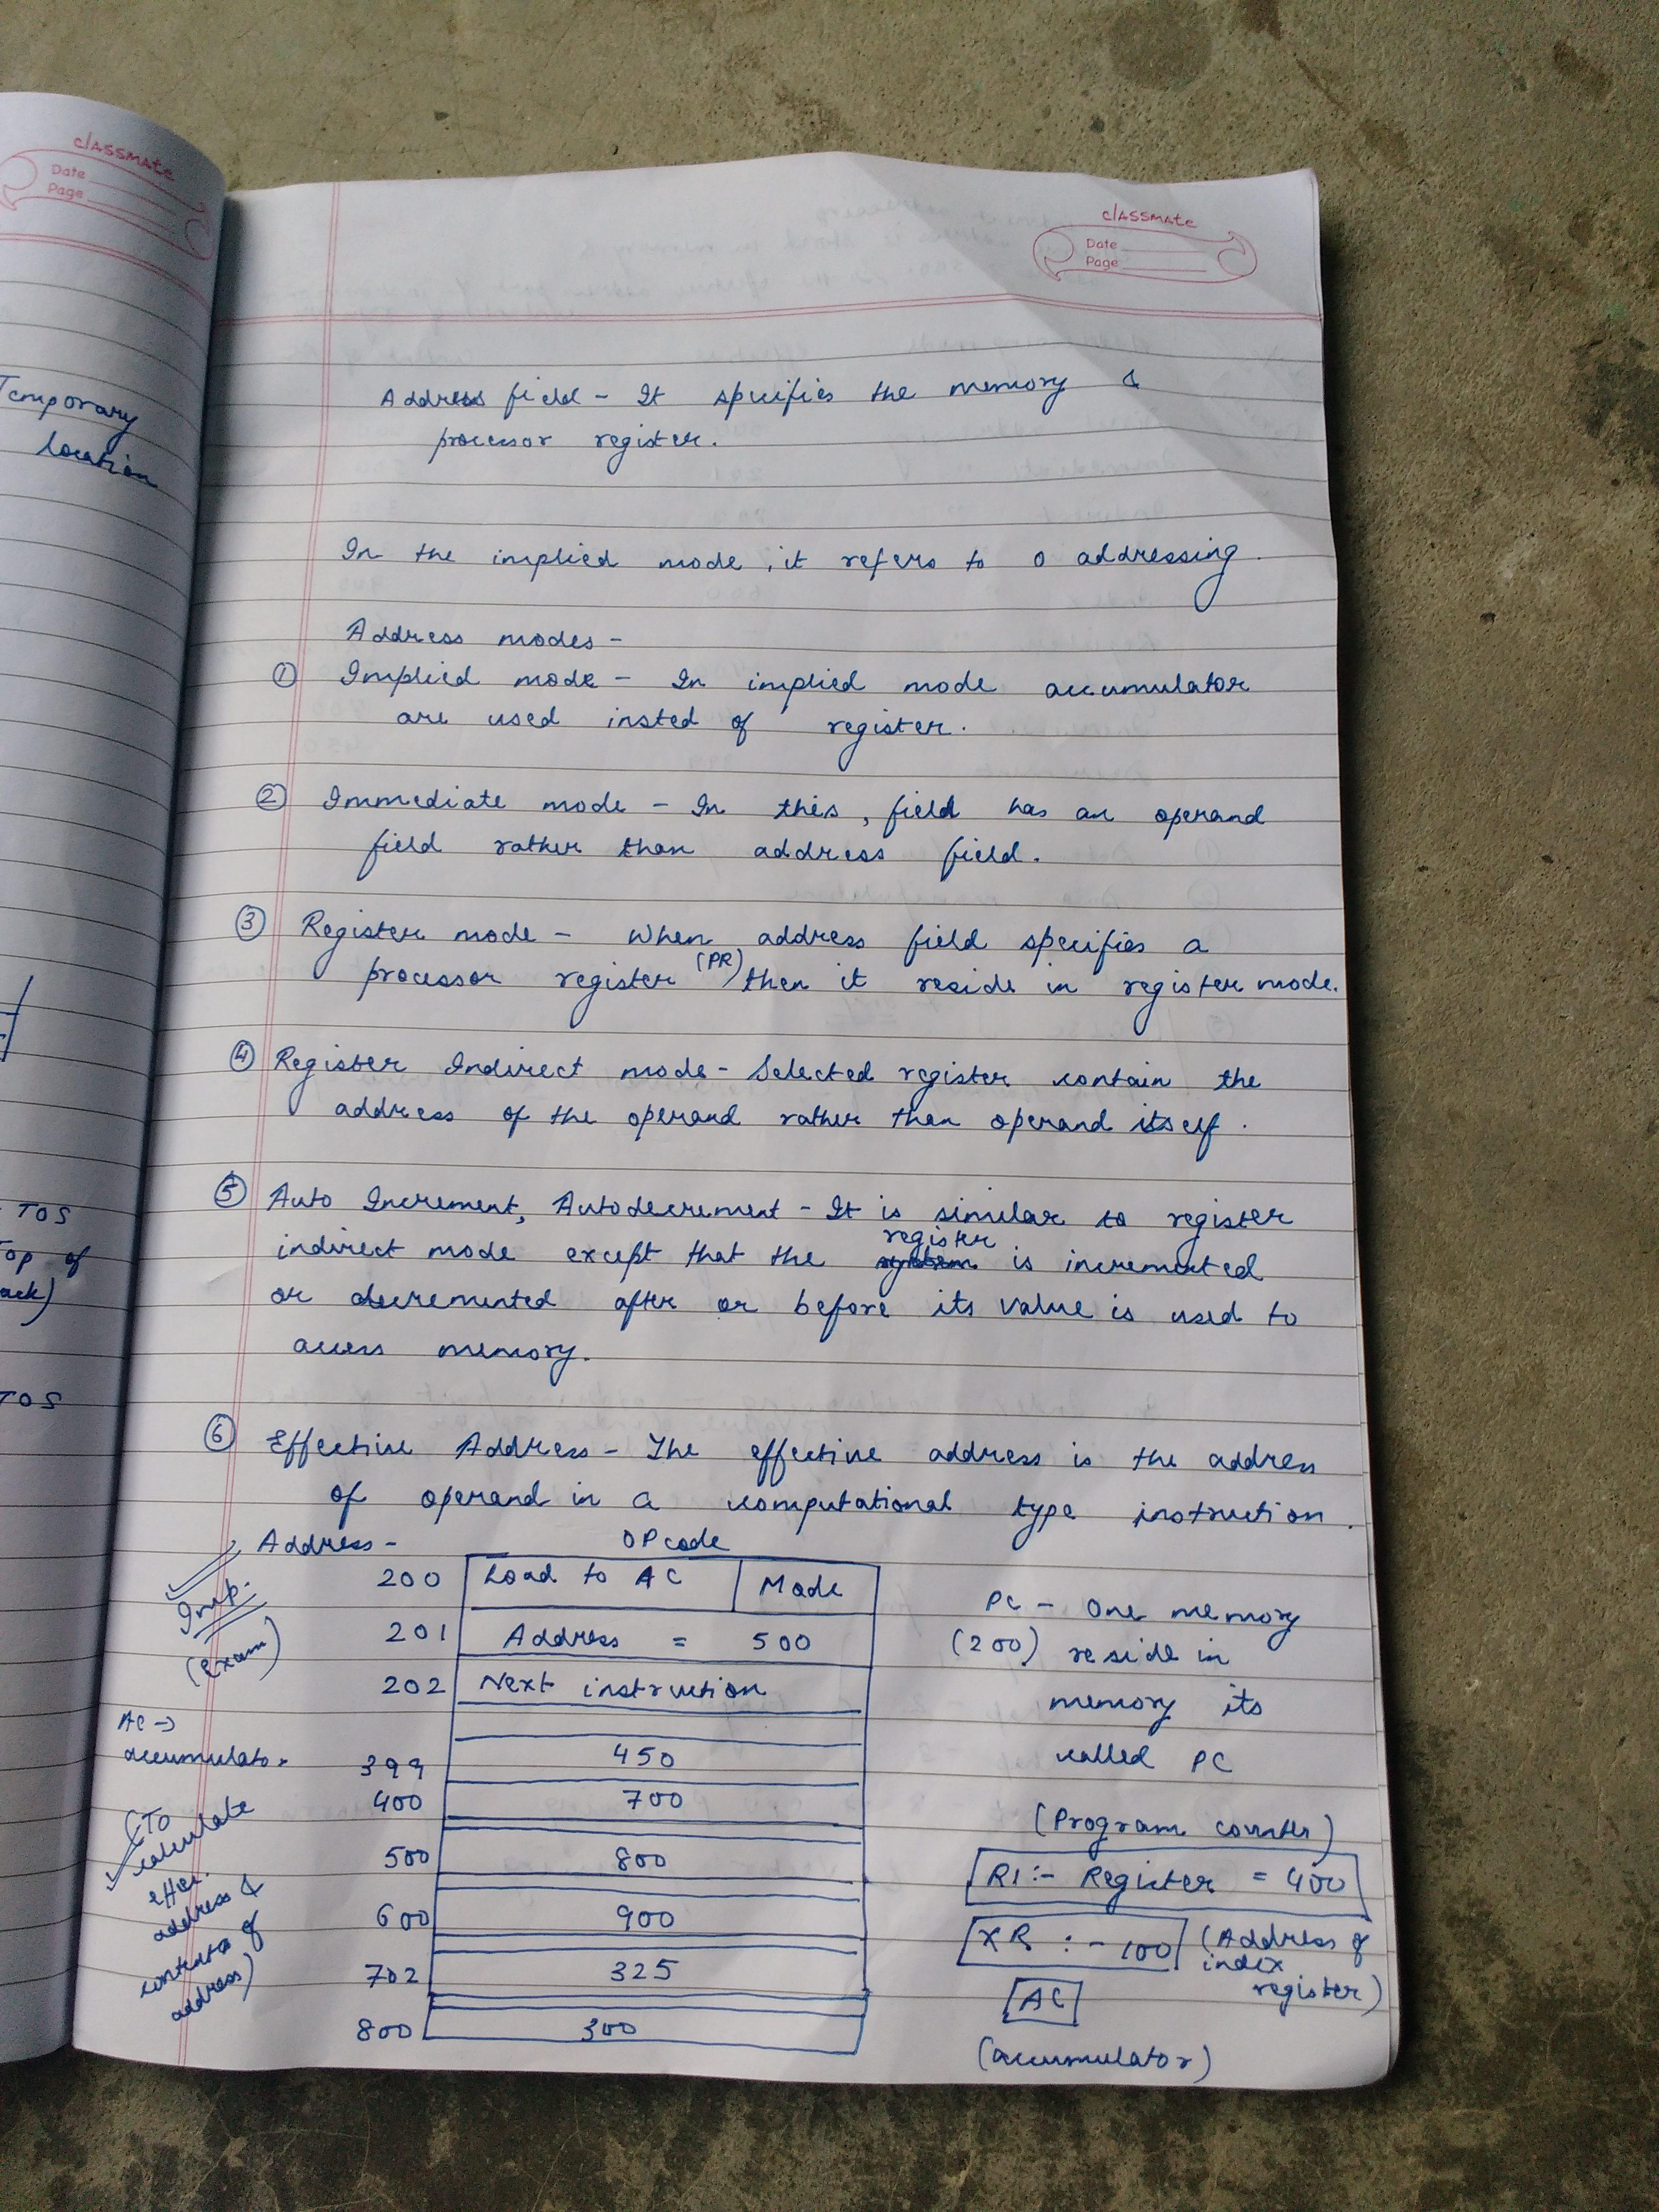 classmate
Date
Page
Temporary
location
TOS
Top of
TOS
classmate
Date
Page
Address field - It specifies the memory &
processor register.
In the implied mode, it refers to 0 addressing.
Address modes -
① Implied mode - In implied mode accumulator
are used insted of register.
② Immediate mode - In this, field has an operand
field rather than address field.
③ Register mode - When address field specifies a
processor register (PR) then it reside in register mode.
④ Register Indirect mode - Selected register contain the
address of the operand rather than operand itself.
⑤ Auto Increment, Autodecrement - It is similar to register
indirect mode except that the register is incremented
or decremented after or before its value is used to
access memory.
⑥ Effective Address - The effective address is the address
of operand in a computational type instruction.
Address - OPcode
200 Load to AC Mode
201 Address = 500
202 Next instruction
399 450
400 700
500 800
600 900
702 325
800 300
Imp.
(exam)
AC →
accumulator
(To
calculate
effec.
address &
contents of
address)
PC - One memory
(200) reside in
memory its
called PC
(Program counter)
R1 :- Register = 400
XR :- 100 (Address of
index
register)
AC
(accumulator)